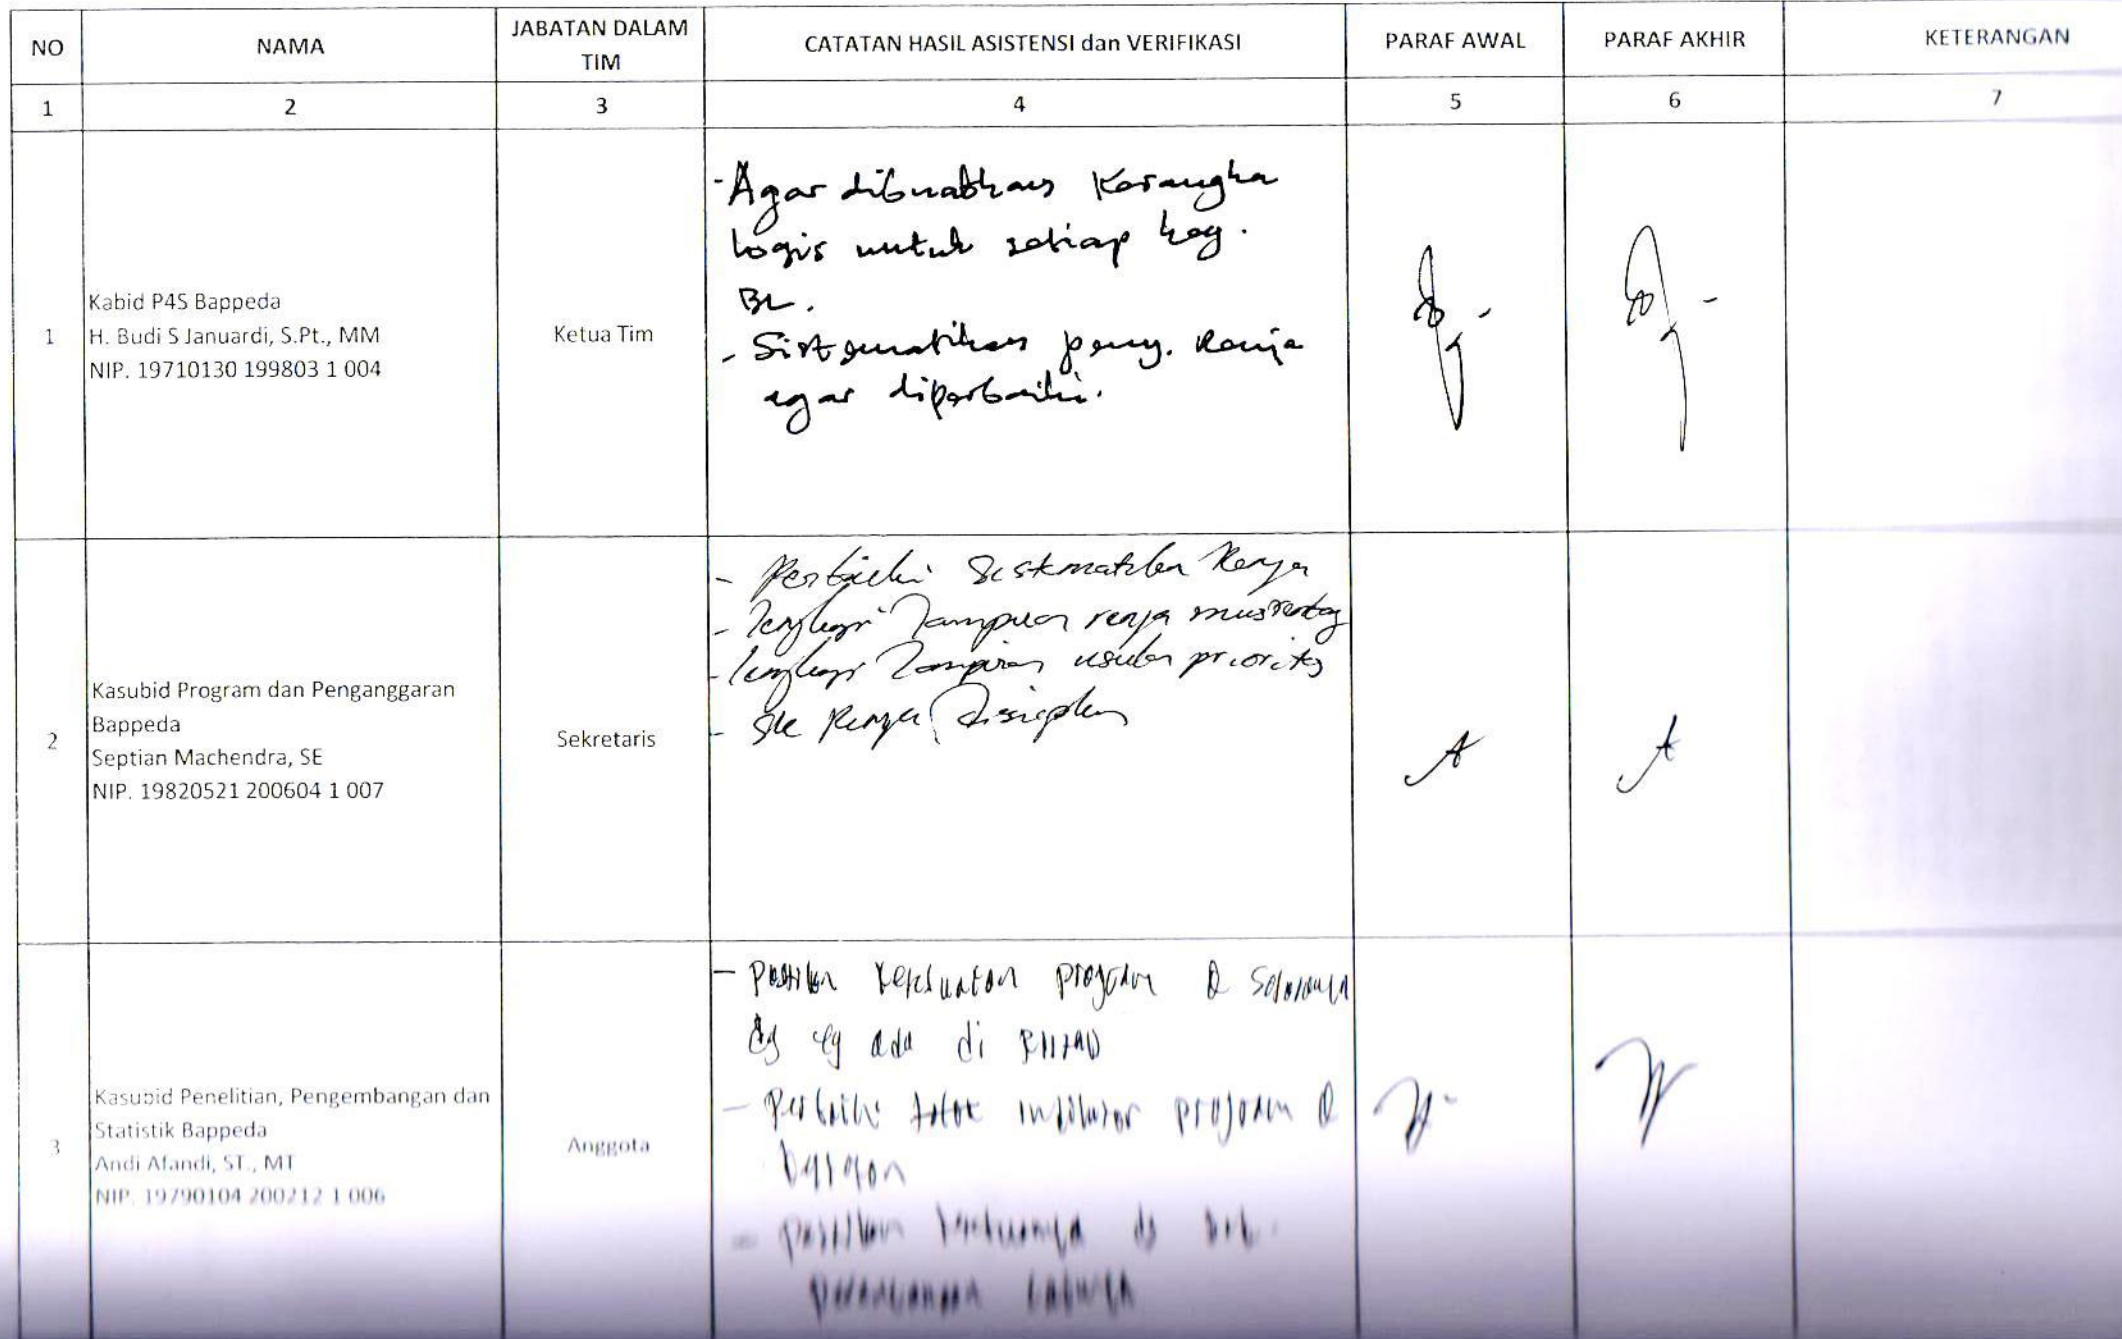 NO NAMA JABATAN DALAM TIM CATATAN HASIL ASISTENSI dan VERIFIKASI PARAF AWAL PARAF AKHIR KETERANGAN
1 2 3 4 5 6 7
1
Kabid P4S Bappeda
H. Budi S Januardi, S.Pt., MM
NIP. 19710130 199803 1 004
Ketua Tim
- Agar dibuatkan Kerangka
logis untuk setiap keg.
BL.
- Sistematikan peny. Renja
agar diperbaiki.
2
Kasubid Program dan Penganggaran
Bappeda
Septian Machendra, SE
NIP. 19820521 200604 1 007
Sekretaris
- Perbaiki Sistematika Renja
- lengkapi lampiran renja musrenbang
- lengkapi lampiran usulan prioritas
- SK Renja disiapkan
3
Kasubid Penelitian, Pengembangan dan
Statistik Bappeda
Andi Afandi, ST., MT
NIP. 19790104 200212 1 006
Anggota
- Pastikan program &
dg yg ada di
- Perbaiki tolok indikator program &
- Pastikan dg